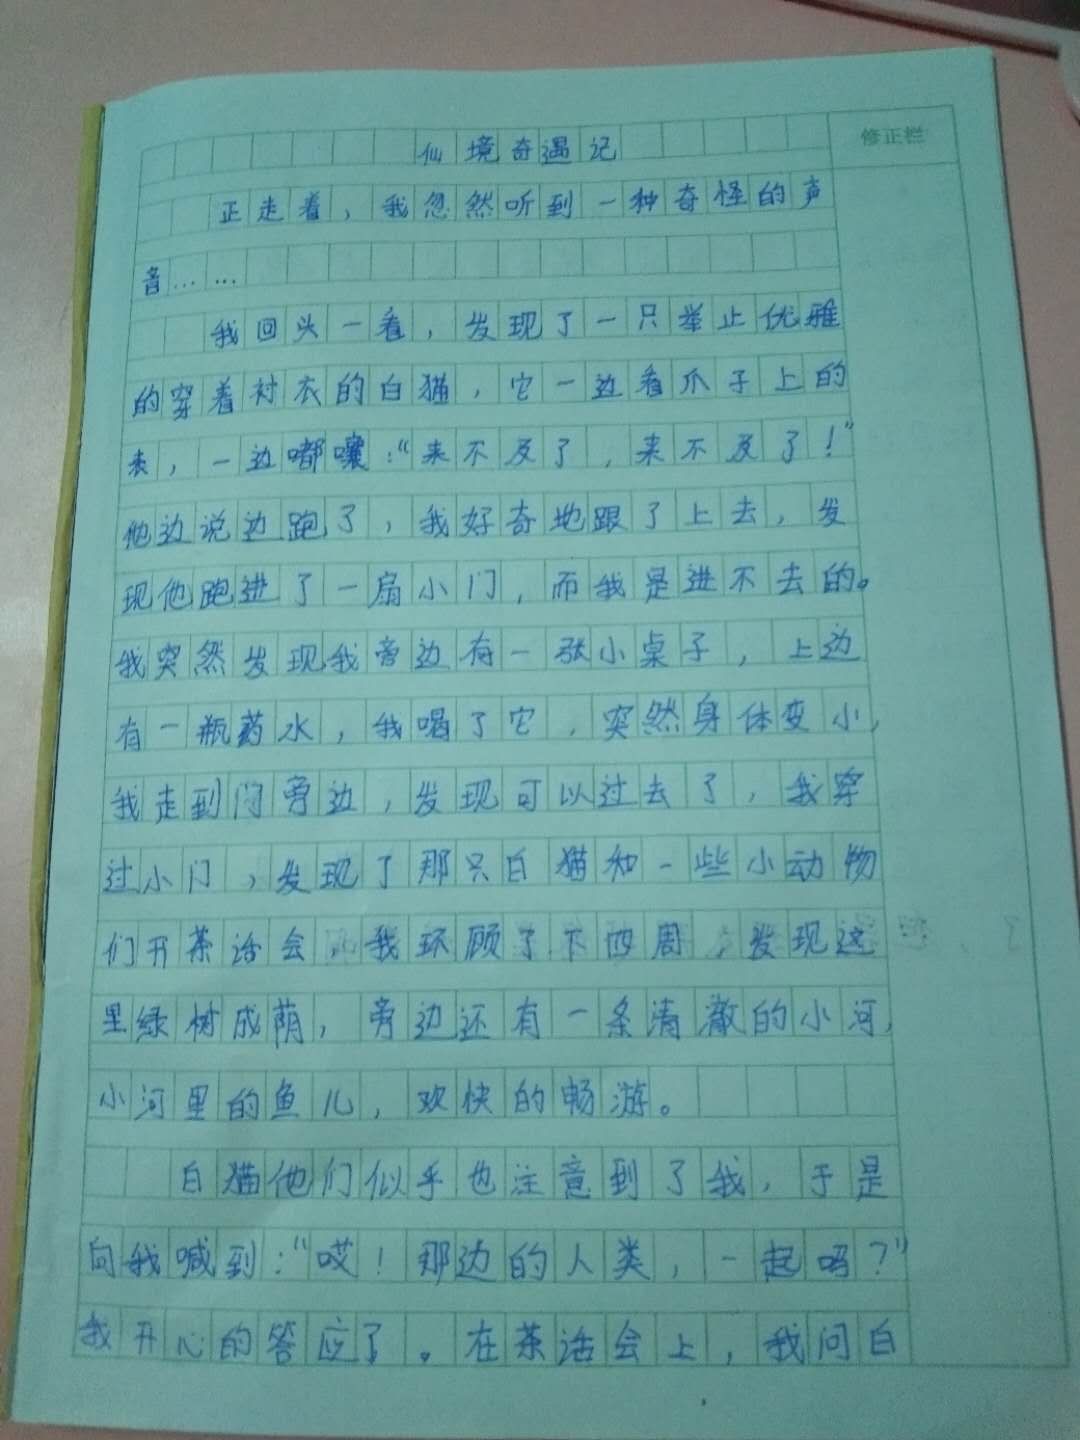 仙境奇遇记
修正栏
正走着，我忽然听到一种奇怪的声
音……
我回头一看，发现了一只举止优雅
的穿着衬衣的白猫，它一边看爪子上的
表，一边嘟囔：“来不及了，来不及了！”
他边说边跑了，我好奇地跟了上去，发
现他跑进了一扇小门，而我是进不去的。
我突然发现我旁边有一张小桌子，上边
有一瓶药水，我喝了它，突然身体变小，
我走到门旁边，发现可以过去了，我穿
过小门，发现了那只白猫和一些小动物
们开茶话会，我环顾了下四周，发现这
里绿树成荫，旁边还有一条清澈的小河，
小河里的鱼儿，欢快的畅游。
白猫他们似乎也注意到了我，于是
向我喊到：“哎！那边的人类，一起吗？”
我开心的答应了。在茶话会上，我问白